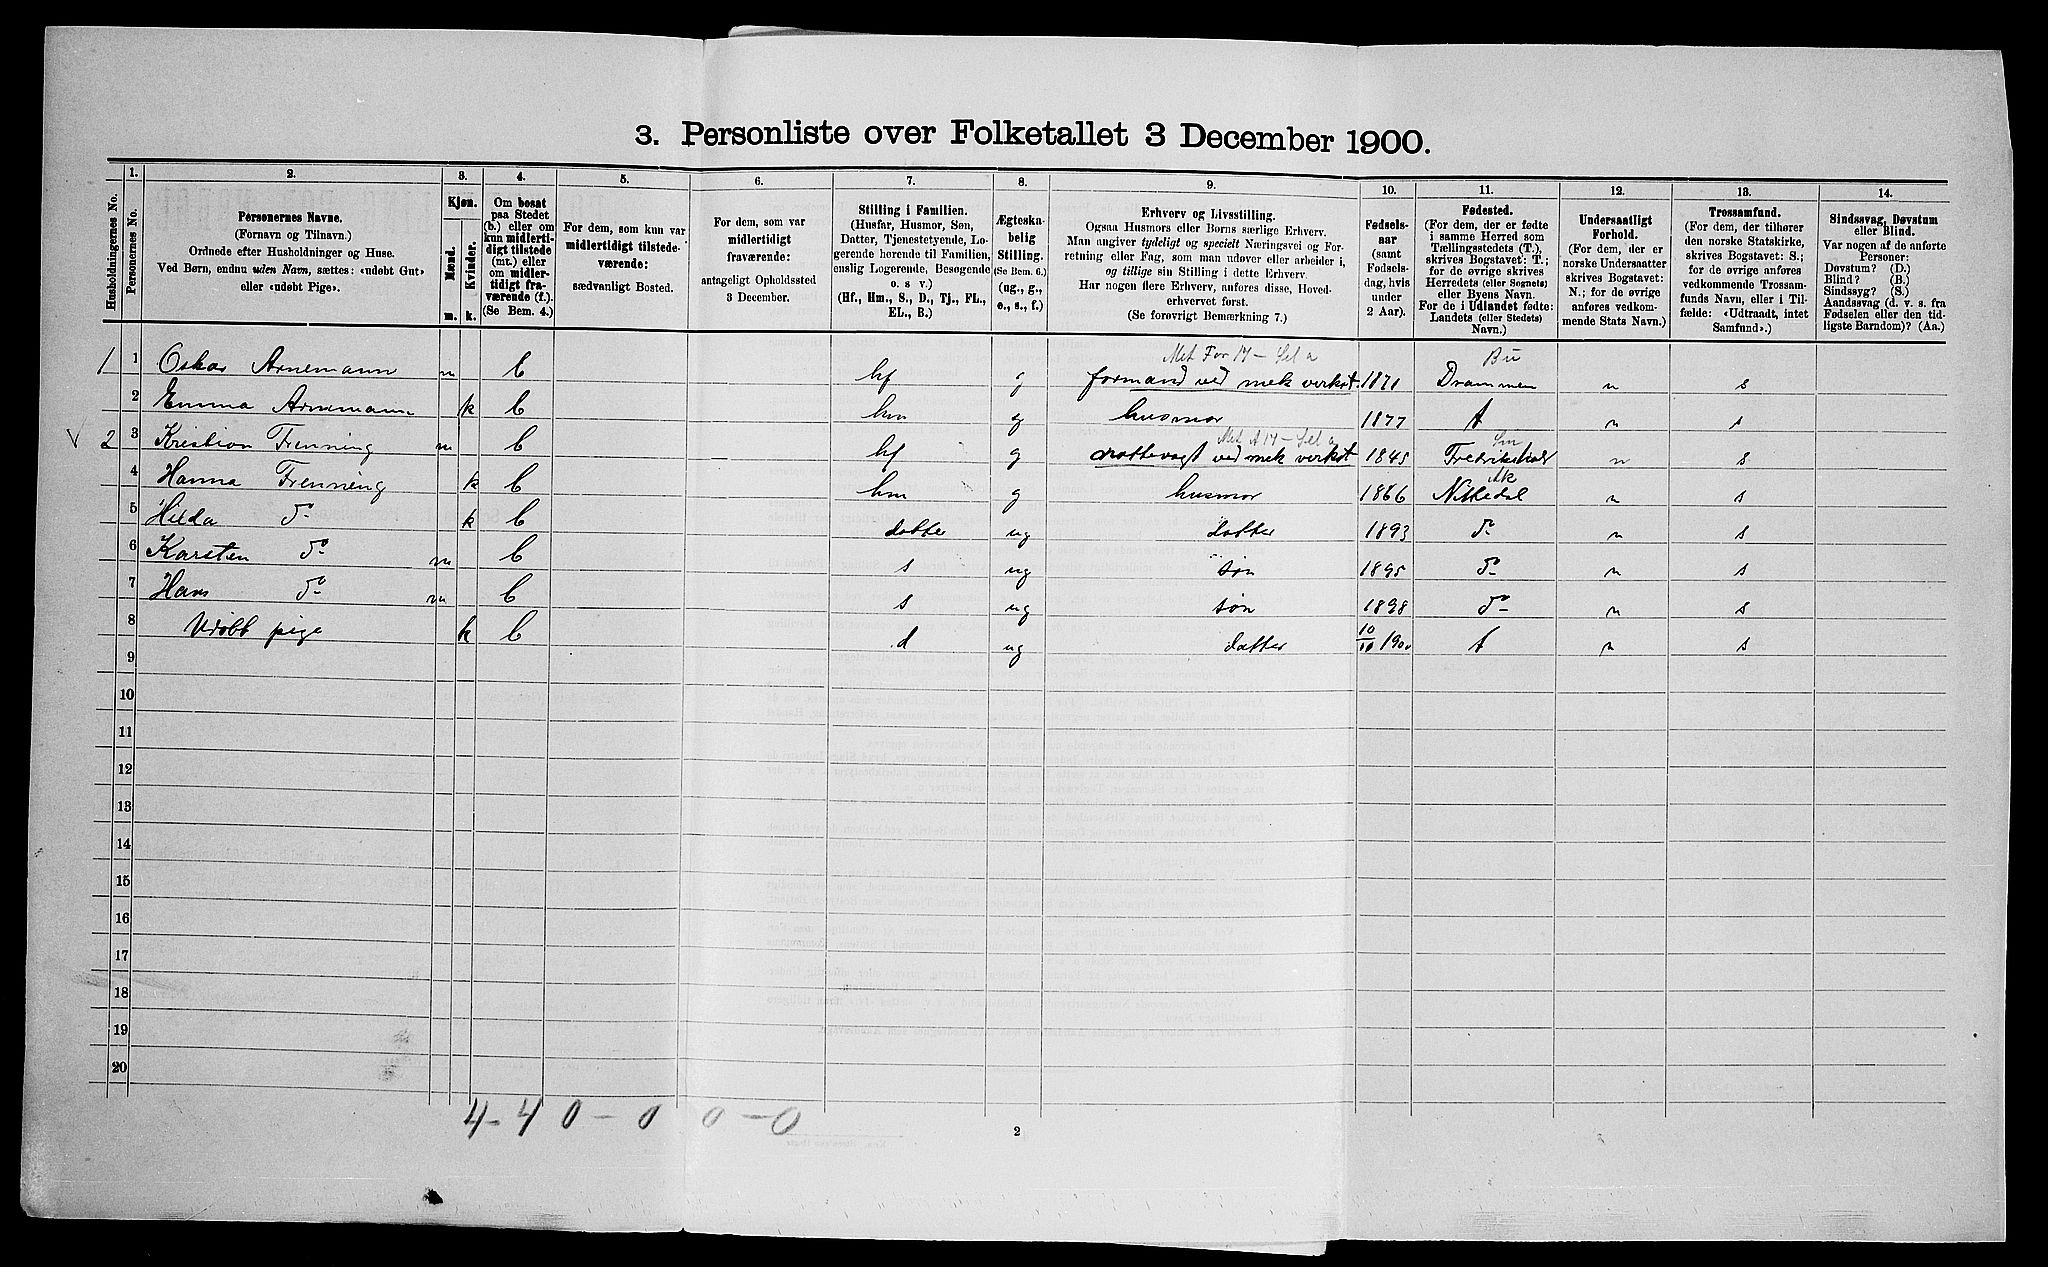 3. Personliste over Folketallet 3 December 1900.
Husholdningernes No.
1.
Personernes No.
2.
Personernes Navne.
(Fornavn og Tilnavn.)
Ordnede efter Husholdninger og Huse.
Ved Børn, endnu uden Navn, sættes: «udøbt Gut»
eller «udøbt Pige».
3.
Kjøn.
Mænd.
Kvinder.
m.
k.
4.
Om bosat
paa Stedet
(b.) eller om
kun midlerti-
digt tilstede
(mt.) eller
om midler-
tidigt fra-
værende (f.).
(Se Bem. 4.)
5.
For dem, som kun var
midlertidigt tilstede-
værende:
sædvanligt Bosted.
6.
For dem, som var
midlertidigt
fraværende:
antageligt Opholdssted
3 December.
7.
Stilling i Familien.
(Husfar, Husmor, Søn,
Datter, Tjenestetyende, Lo-
gerende hørende til Familien,
enslig Logerende, Besøgende
o. s v.)
(Hf., Hm., S., D., Tj., FL.,
EL., B.)
8.
Ægteska-
belig
Stilling.
(Se Bem. 6.)
(ug., g.,
e., s., f.)
9.
Erhverv og Livsstilling.
Ogsaa Husmors eller Børns særlige Erhverv.
Man angiver tydeligt og specielt Næringsvei og For-
retning eller Fag, som man udøver eller arbeider i,
og tillige sin Stilling i dette Erhverv.
Har nogen flere Erhverv, anføres disse, Hoved-
erhvervet først.
(Se forøvrigt Bemærkning 7.)
10.
Fødsels-
aar
(samt
Fødsels-
dag, hvis
under
2 Aar).
11.
Fødested.
(For dem, der er fødte
i samme Herred som
Tællingsstedets (T.),
skrives Bogstavet: T.;
for de øvrige skrives
Herredets (eller Sognets)
eller Byens Navn.
For de i Udlandet fødte:
Landets (eller Stedets)
Navn.)
12.
Undersaatligt
Forhold.
(For dem, der er
norske Undersaatter
skrives Bogstavet:
N.; for de øvrige
anføres vedkom-
mende Stats Navn.)
13.
Trossamfund.
(For dem, der tilhører
den norske Statskirke,
skrives Bogstavet: S.;
for de øvrige anføres
vedkommende Trossam-
funds Navn, eller i Til-
fælde: «Udtraadt, intet
Samfund».)
14.
Sindssvag, Døvstum
eller Blind.
Var nogen af de anførte
Personer:
Døvstum? (D.)
Blind? (B.)
Sindssyg? (S.)
Aandssvag (d. v. s. fra
Fødselen eller den tid-
ligste Barndom)? (Aa.)
Met For 17 - Sel a Bu
1 1 Oskar Arnemann m b hf g formand ved mek verkst. 1871 Drammen n s
2 Emma Arnemann k b hm g husmor 1877 t n s
Met A 17 - Sel a Sm
2 3 Kristian Frenning m b hf g nattevagt ved mek verkst 1845 Fredrikshald n s
Ak
4 Hanna Frenning k b hm g husmor 1866 Nittedal n s
5 Hilda do k b datter ug datter 1893 do n s
6 Karsten do m b s ug søn 1895 do n s
7 Hans do m b s ug søn 1898 do n s
8 Udøbt pige k b d ug datter 10/10 1900 t n s
9
10
11
12
13
14
15
16
17
18
19
20
4 - 4 0 - 0 0 - 0
2